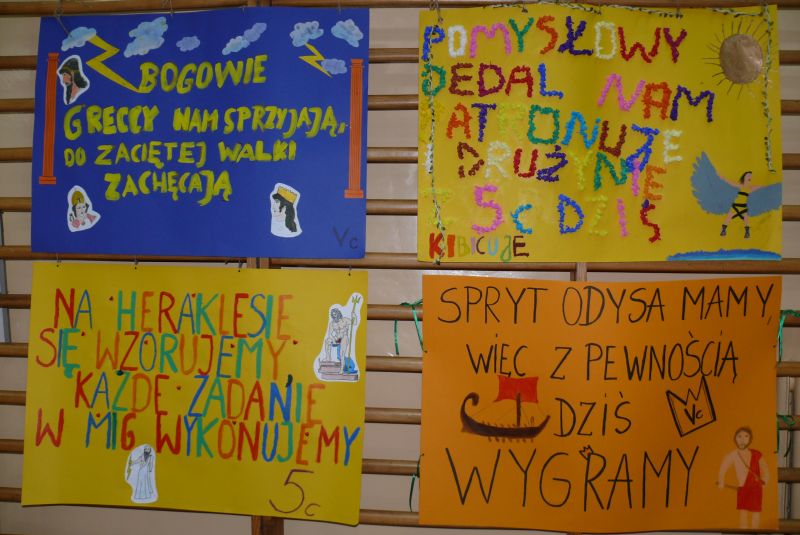 BOGOWIE
GRECCY NAM SPRZYJAJĄ,
DO ZACIĘTEJ WALKI
ZACHĘCAJĄ
Vc
POMYSŁOWY
DEDAL NAM
PATRONUJE
I DRUŻYNIE
5c DZIŚ
KIBICUJE
NA HERAKLESIE
SIĘ WZORUJEMY
KAŻDE ZADANIE
W MIG WYKONUJEMY
5c
SPRYT ODYSA MAMY,
WIĘC Z PEWNOŚCIĄ
DZIŚ
Vc
WYGRAMY